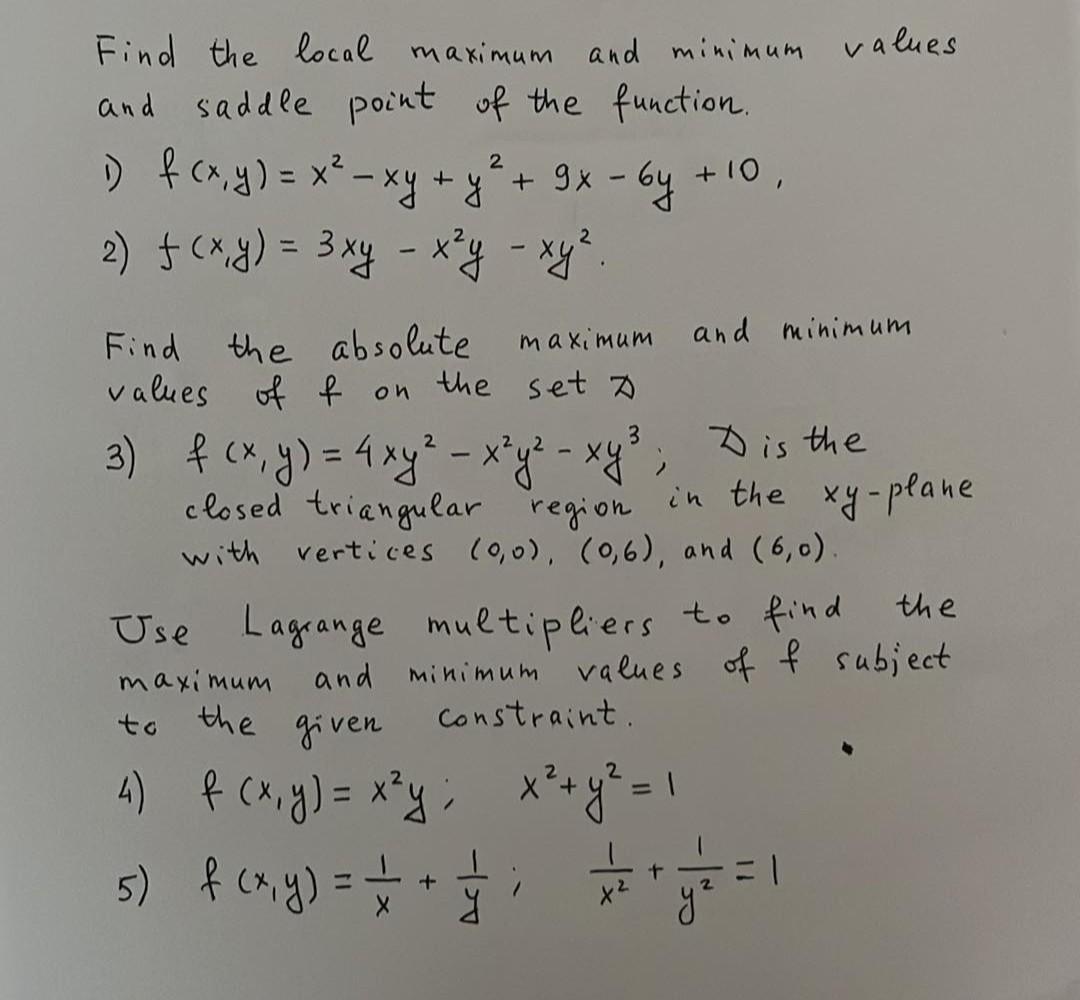 Find the local maximum and minimum values
and saddle point of the function.
1) f(x,y) = x² - xy + y² + 9x - 6y + 10,
2) f(x,y) = 3xy - x²y - xy².
Find the absolute maximum and minimum
values of f on the set D
3) f(x,y) = 4xy² - x²y² - xy³; D is the
closed triangular region in the xy-plane
with vertices (0,0), (0,6), and (6,0).
Use Lagrange multipliers to find the
maximum and minimum values of f subject
to the given constraint.
4) f(x,y) = x²y; x² + y² = 1
5) f(x,y) = 1/x + 1/y; 1/x² + 1/y² = 1